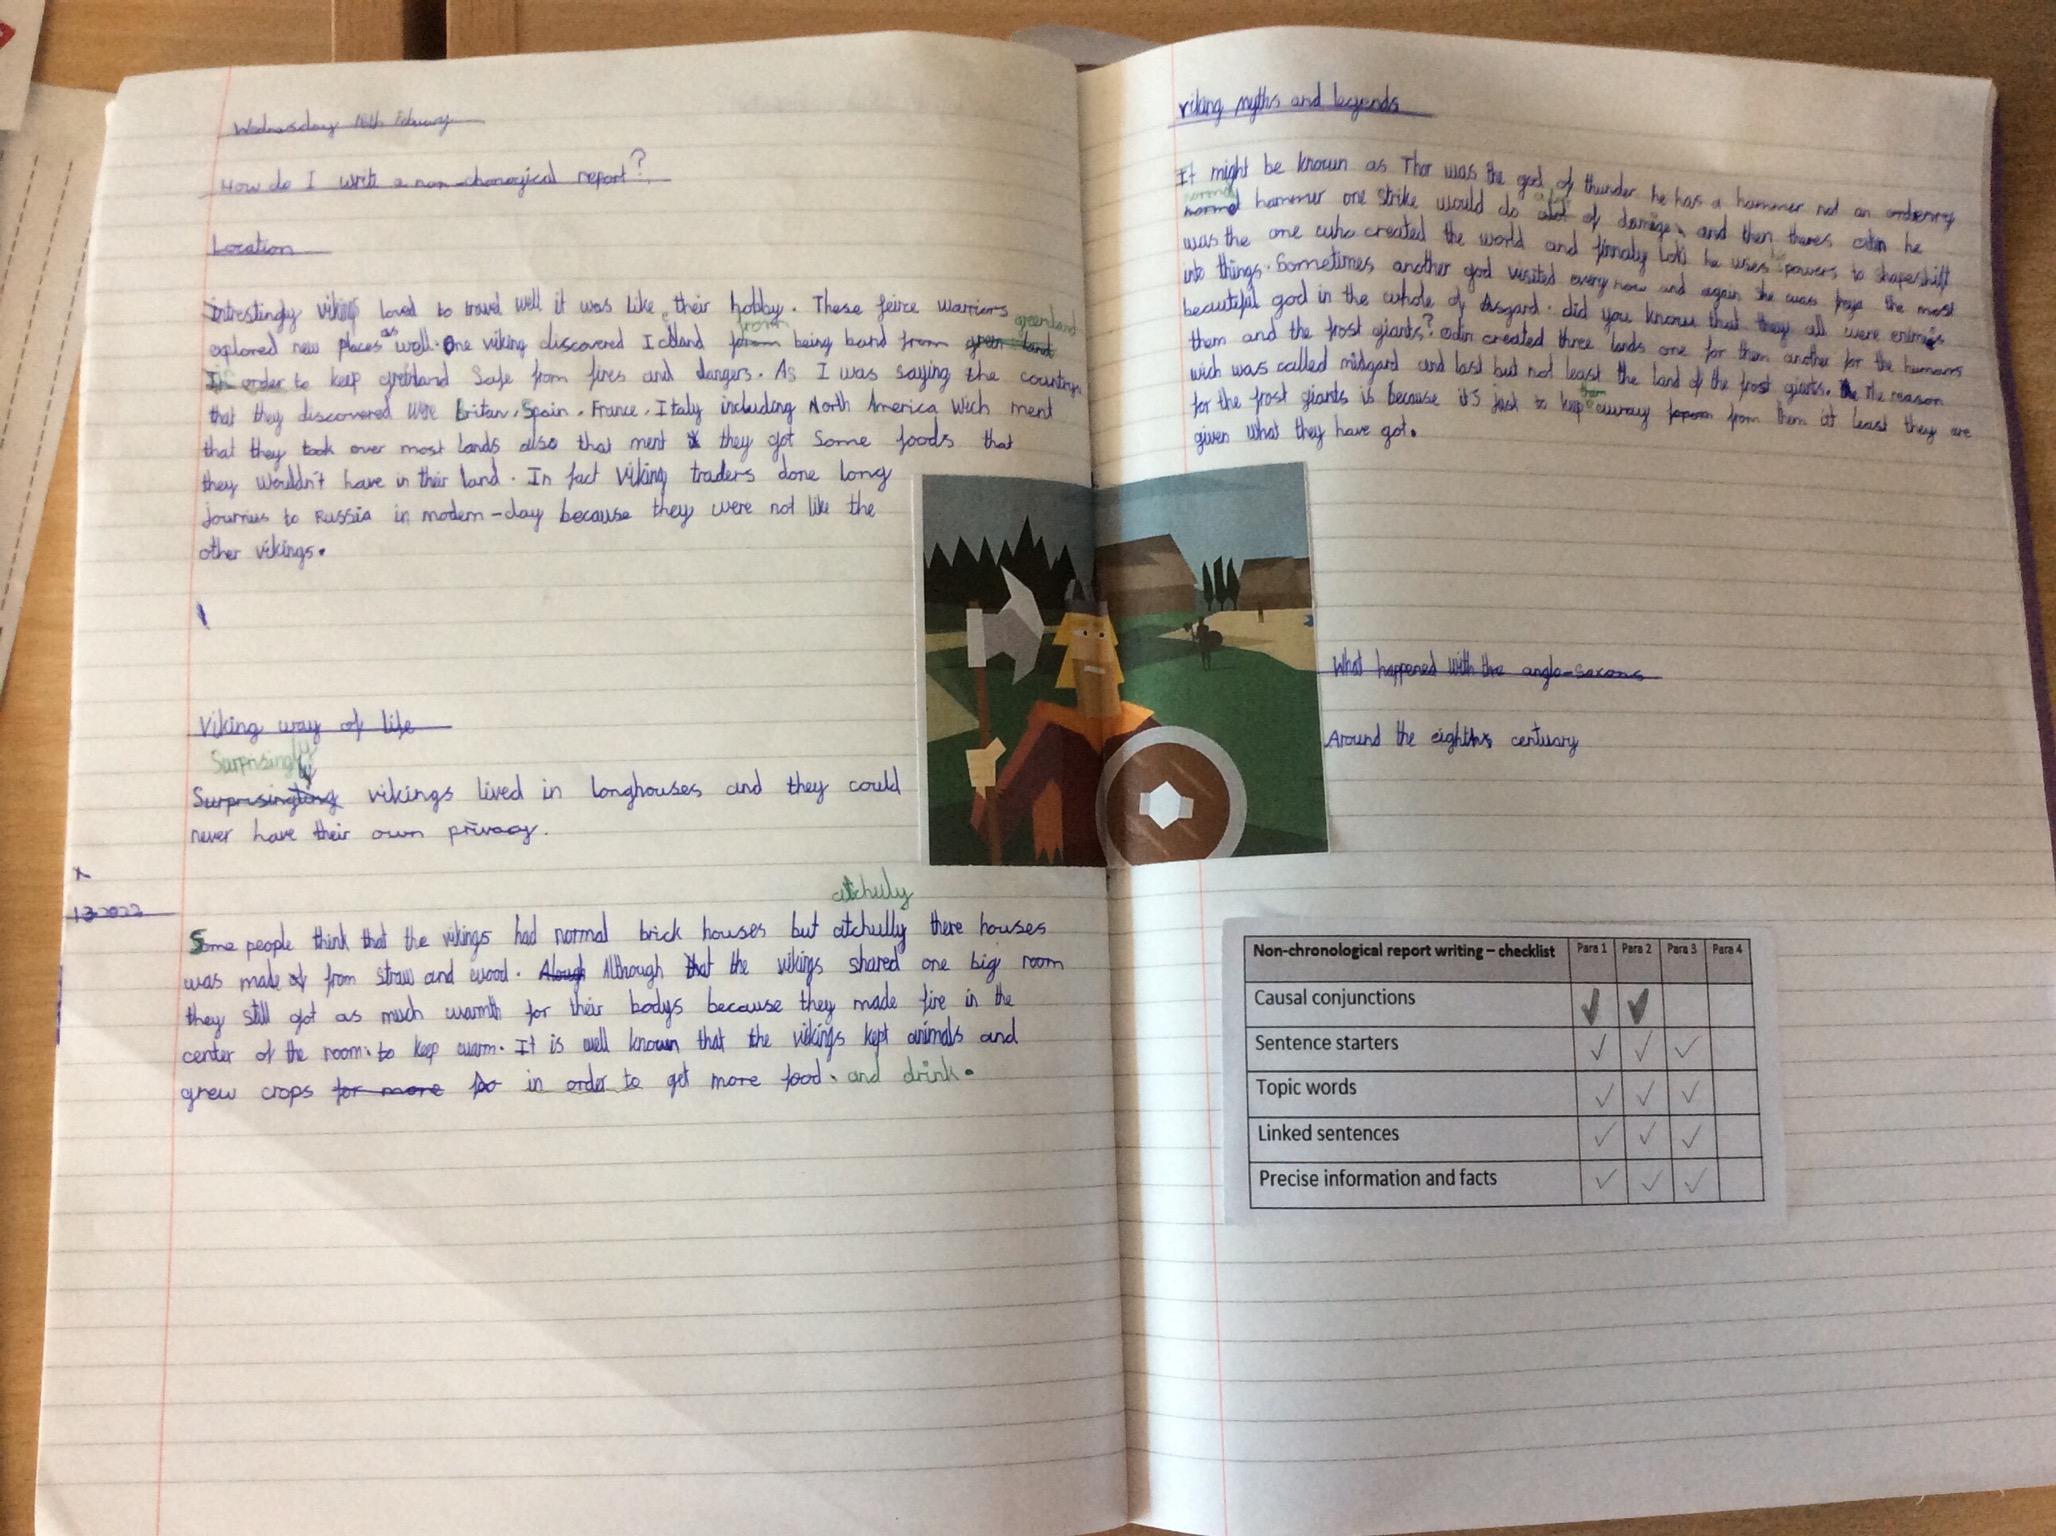 Wednesday 16th Febuary
How do I write a non-chonogical report?
Location
Intrestingly vikings loved to travel well it was like their hobby. These feirce warriors
explored new places as well. One viking discovered Iceland from being band from greenland
In order to keep greenland Safe from fires and dangers. As I was saying the countrys
that they discovered were Britan, Spain, France, Italy including North America wich ment
that they took over most lands also that ment they got some foods that
they wouldn't have in their land. In fact Viking traders done long
journies to Russia in modern-day because they were not like the
other vikings.
Viking way of life
Surprisingly
Surprisinglly vikings lived in longhouses and they could
never have their own privacy.
1 3 2022
atchuly
Some people think that the vikings had normal brick houses but atchully there houses
was made of from straw and wood. Alough Although that the vikings shared one big room
they still got as much warmth for their bodys because they made fire in the
center of the room to keep warm. It is well known that the vikings kept animals and
grew crops for more in order to get more food, and drink.
viking myths and legends
It might be known as Thor was the god of thunder he has a hammer not an ordenrey
normal
hammer one strike would do alot of damige, and then theres odin he
was the one who created the world and finnaly Loki he uses his powers to shapeshift
into things. Sometimes another god visited every now and again she was freya the most
beautiful god in the whole of Asgard. did you know that they all were enimies
them and the frost giants? Odin created three lands one for them another for the humans
wich was called midgard and last but not least the land of the frost giants. The reason
for the frost giants is because it's just to keep them away from them at least they are
given what they have got.
What happened with the anglo-saxons
Around the eighths centuary
Non-chronological report writing – checklist Para 1 Para 2 Para 3 Para 4
Causal conjunctions ✓ ✓
Sentence starters ✓ ✓ ✓
Topic words ✓ ✓ ✓
Linked sentences ✓ ✓ ✓
Precise information and facts ✓ ✓ ✓